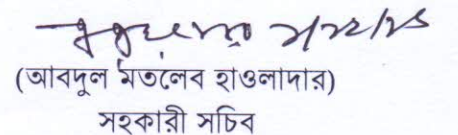 (আবদুল মতলেব হাওলাদার)
সহকারী সচিব